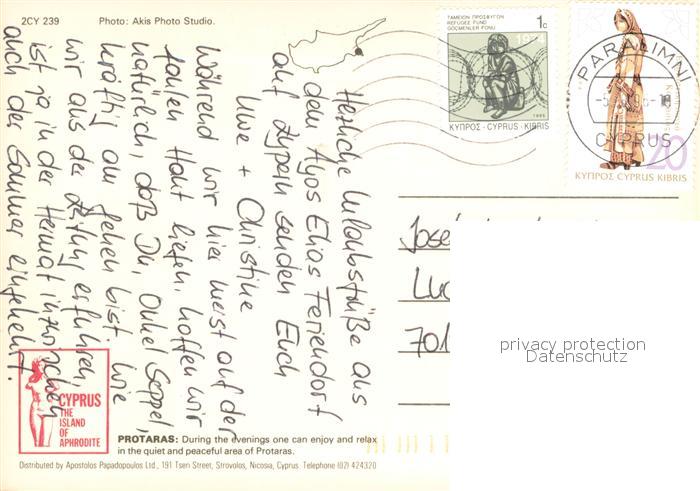 2CY 239
Photo: Akis Photo Studio.
Herzliche Urlaubsgrüße aus
dem Agos Elias Feriendorf
auf Zypern senden Euch
Uwe + Christine
Während wir hier meist auf der
faulen Haut liegen, hoffen wir
natürlich, daß Du, Onkel Seppel,
kräftig am gehen bist. Wie
wir aus der Zeitung erfuhren,
ist ja in der Heimat inzwischen
auch der Sommer eingekehrt.
ΤΑΜΕΙΟΝ ΠΡΟΣΦΥΓΩΝ
REFUGEE FUND
GÖÇMENLER FONU
1c
1974
1995
ΚΥΠΡΟΣ · CYPRUS · KIBRIS
PARALIMNI
CYPRUS
20
ΚΥΠΡΟΣ CYPRUS KIBRIS
Josef
701
privacy protection
Datenschutz
CYPRUS
THE
ISLAND
OF
APHRODITE
PROTARAS: During the evenings one can enjoy and relax
in the quiet and peaceful area of Protaras.
Distributed by Apostolos Papadopoulos Ltd., 191 Tsen Street, Strovolos, Nicosia, Cyprus. Telephone (02) 424320